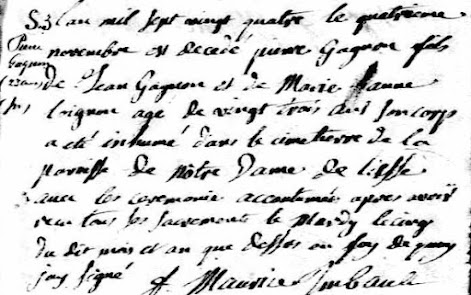 S3 Lan mil sept vingt quatre le quatrieme
Pierre
Gagnon
(23 ans)
novembre est decedé pierre Gagnon fils
de Jean Gagnon et de Marie Jeanne
Loignon age de vingt trois ans son corps
a été inhumé dans le cimetierre de la
paroisse de nôtre Dame de liesse
avec les ceremonie accoutumés apres avoir
receu tous les sacrements le Mardy le cinq
du dit mois et an que dessus en foy de quoy
jay signé f. Maurice Imbault